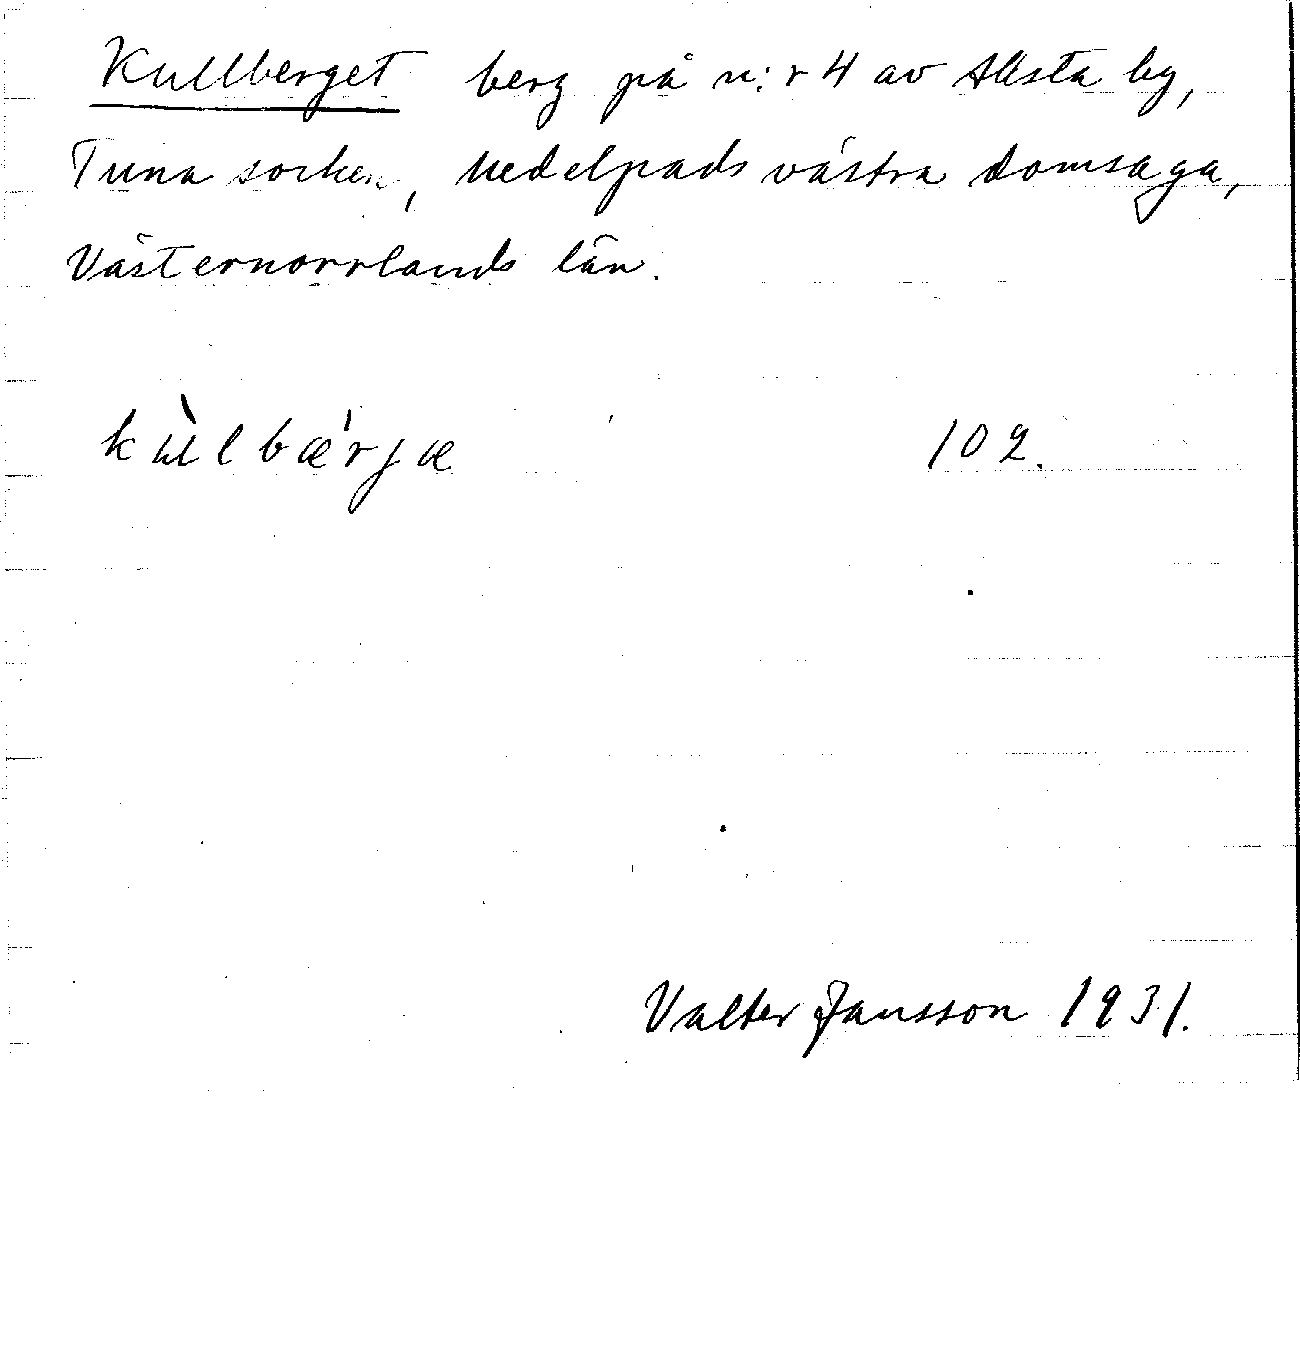 Kullberget berg på n:r 4 av Allsta by,
Tuna socken, Medelpads västra domsaga,
Västernorrlands län.
kùlbæ'rjæ 102.
Valter Jansson 1931.